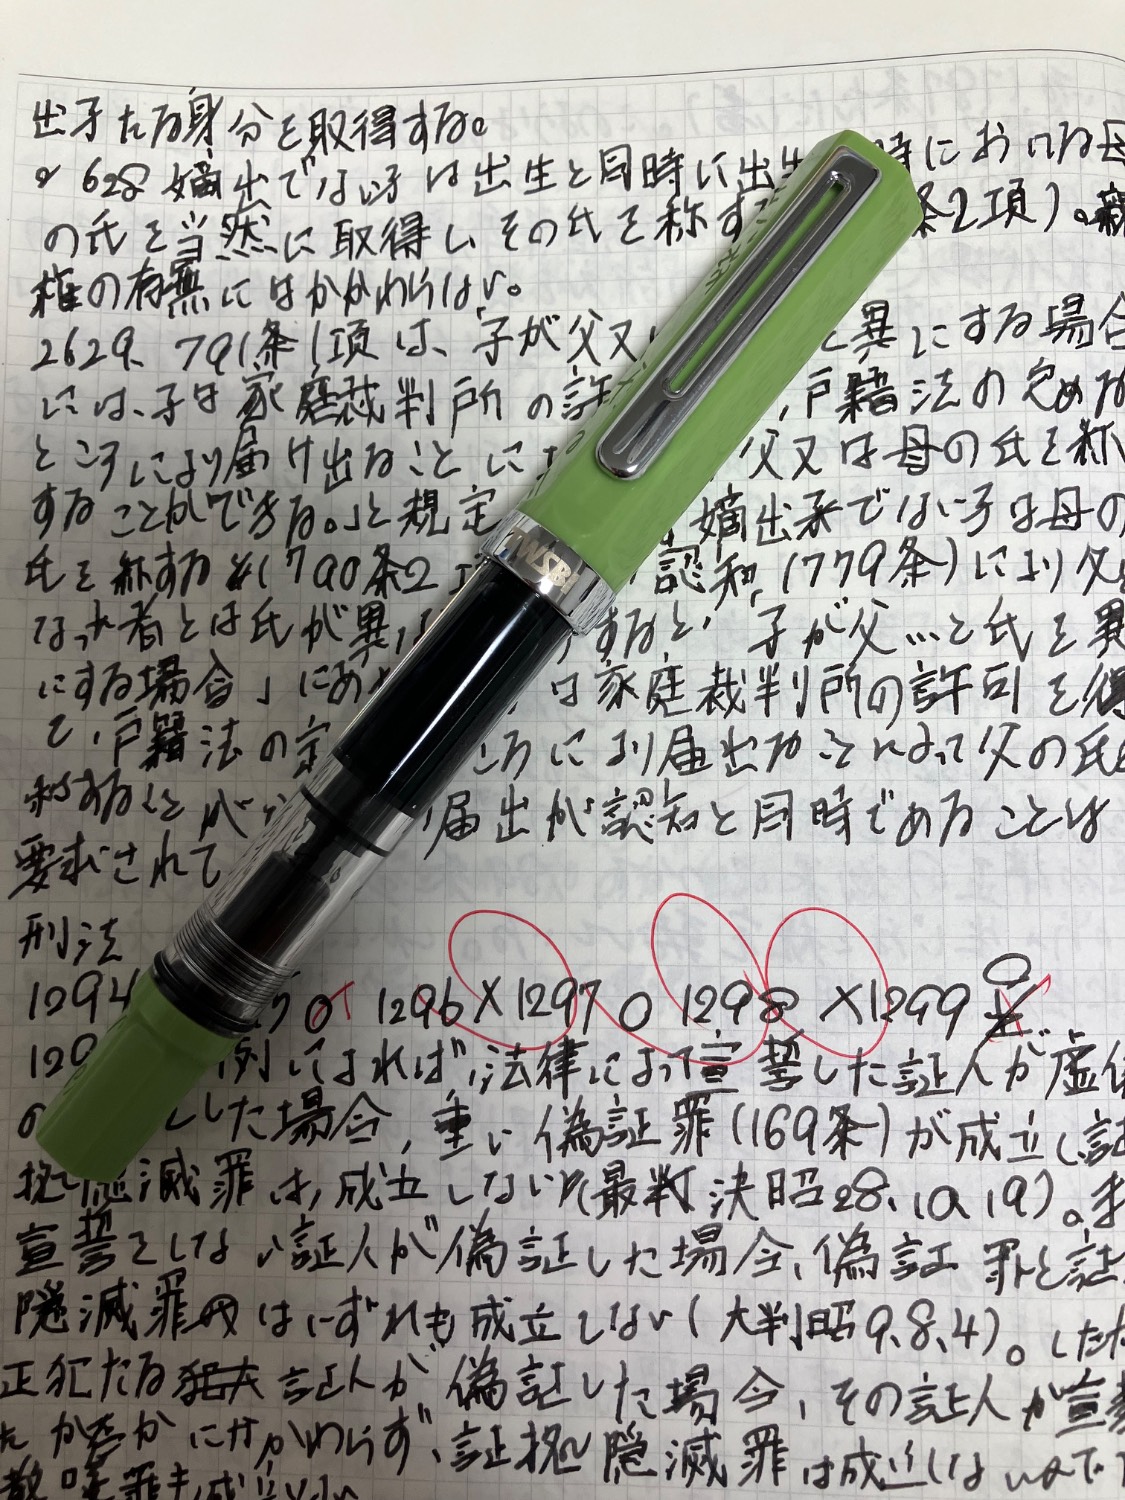 出子たる身分を取得する。
628 嫡出でない子は出生と同時に出生時における母
の氏を当然に取得し、その氏を称す 条2項)。親
権の有無にはかかわらない。
2629、791条1項は、子が父又 と異にする場合
には、子は家庭裁判所の許 、戸籍法の定める
ところにより届け出ることに 父又は母の氏を称
することができる。」と規定 嫡出子でない子は母の
氏を称する 790条2 認知(779条)により父と
なった者とは氏が異 すると、子が父…と氏を異
にする場合」にあ は家庭裁判所の許可を得
て、戸籍法の定 ころにより届出ることによって父の氏を
称することが 届出が認知と同時であることは
要求されて
刑法
1294 0 1296×1297 0 1298 ×1299 0
129 例によれば、法律によって宣誓した証人が虚偽
の した場合、重い偽証罪(169条)が成立し、証
拠隠滅罪は、成立しない(最判決昭28.10.19)。ま
宣誓をしない証人が偽証した場合、偽証罪と証
隠滅罪 はいずれも成立しない(大判昭9.8.4)。した
正犯たる 証人が偽証した場合、その証人が宣誓
たか否かにかかわらず、証拠隠滅罪は成立しない
教唆罪も成立しない
TWSBI